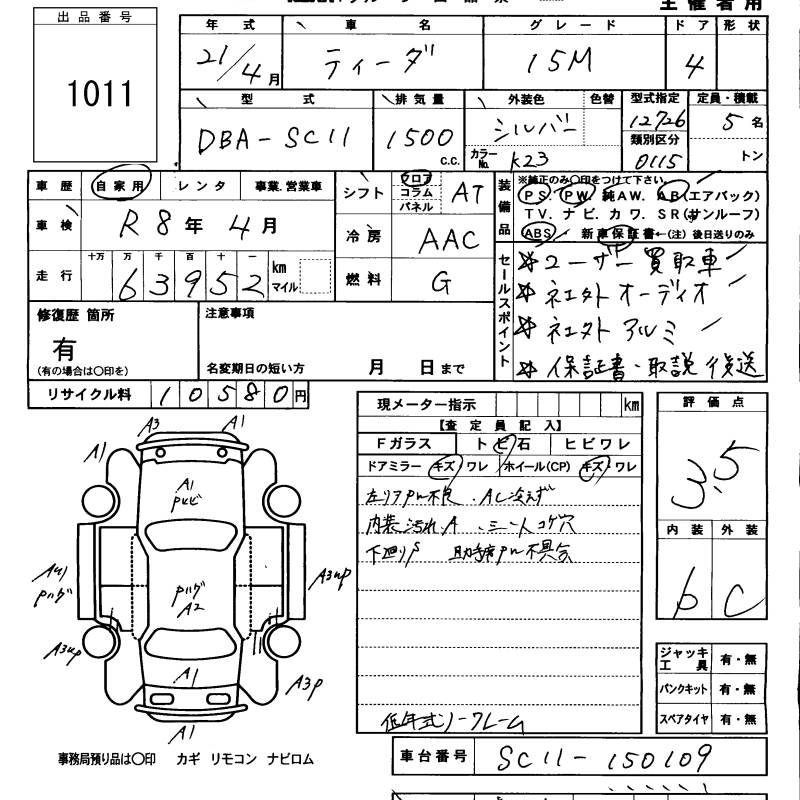 主催者用
出品番号
1011
年式 車名 グレード ドア 形状
21/4月 ティーダ 15M 4
型式 排気量 外装色 色替 型式指定 定員・積載
DBA-SC11 1500 c.c. シルバー 12726 5名
カラーNo. K23 類別区分 0115 トン
車歴 自家用 レンタ 事業.営業車
車検 R8年4月
走行 十万 万 千 百 十 一
63952 km マイル
シフト フロア コラム パネル AT
冷房 AAC
燃料 G
装備品
※純正のみ○印をつけて下さい。
PS. PW. 純AW. AB(エアバック)
TV. ナビ. カワ. SR(サンルーフ)
ABS 新車保証書←(注)後日送りのみ
セールスポイント
ユーザー買取車
社外オーディオ
社外アルミ
保証書・取説後送
修復歴 箇所
有
(有の場合は○印を)
注意事項
名変期日の短い方 月 日まで
リサイクル料 10580円
現メーター指示 km
【査定員記入】
Fガラス トビ石 ヒビワレ
ドアミラー キズ ワレ ホイール(CP) キズ・ワレ
左リアPW不良 . AC冷えず
内装汚れA 、シートコゲ穴
下廻りS 助手席PW不具合
低年式ノークレーム
評価点
3.5
内装 外装
b C
ジャッキ工具 有・無
パンクキット 有・無
スペアタイヤ 有・無
A3 A1
A1
A1
A3up
A2
A3up A3P
A1
A1
事務局預り品は○印 カギ リモコン ナビロム
車台番号 SC11-150109